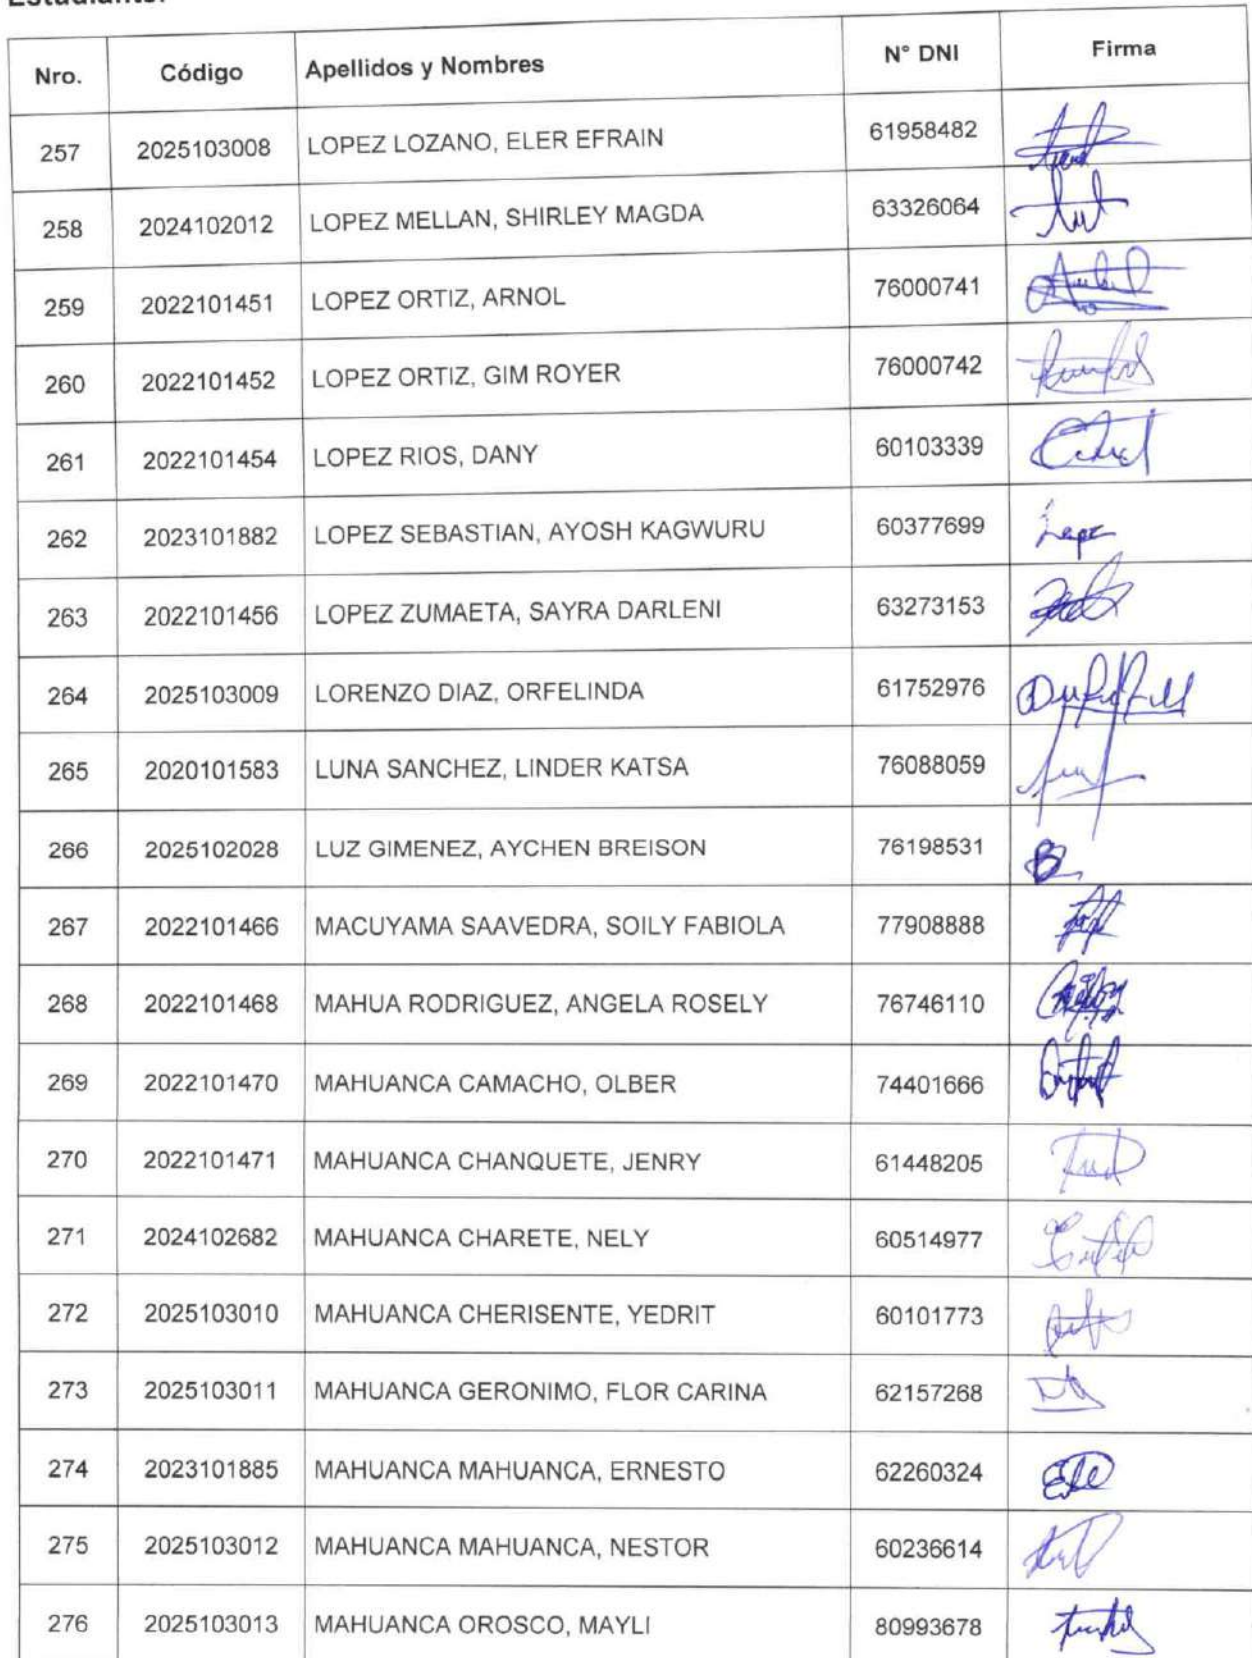 Nro. Código Apellidos y Nombres N° DNI Firma
257 2025103008 LOPEZ LOZANO, ELER EFRAIN 61958482
258 2024102012 LOPEZ MELLAN, SHIRLEY MAGDA 63326064
259 2022101451 LOPEZ ORTIZ, ARNOL 76000741
260 2022101452 LOPEZ ORTIZ, GIM ROYER 76000742
261 2022101454 LOPEZ RIOS, DANY 60103339
262 2023101882 LOPEZ SEBASTIAN, AYOSH KAGWURU 60377699
263 2022101456 LOPEZ ZUMAETA, SAYRA DARLENI 63273153
264 2025103009 LORENZO DIAZ, ORFELINDA 61752976
265 2020101583 LUNA SANCHEZ, LINDER KATSA 76088059
266 2025102028 LUZ GIMENEZ, AYCHEN BREISON 76198531
267 2022101466 MACUYAMA SAAVEDRA, SOILY FABIOLA 77908888
268 2022101468 MAHUA RODRIGUEZ, ANGELA ROSELY 76746110
269 2022101470 MAHUANCA CAMACHO, OLBER 74401666
270 2022101471 MAHUANCA CHANQUETE, JENRY 61448205
271 2024102682 MAHUANCA CHARETE, NELY 60514977
272 2025103010 MAHUANCA CHERISENTE, YEDRIT 60101773
273 2025103011 MAHUANCA GERONIMO, FLOR CARINA 62157268
274 2023101885 MAHUANCA MAHUANCA, ERNESTO 62260324
275 2025103012 MAHUANCA MAHUANCA, NESTOR 60236614
276 2025103013 MAHUANCA OROSCO, MAYLI 80993678